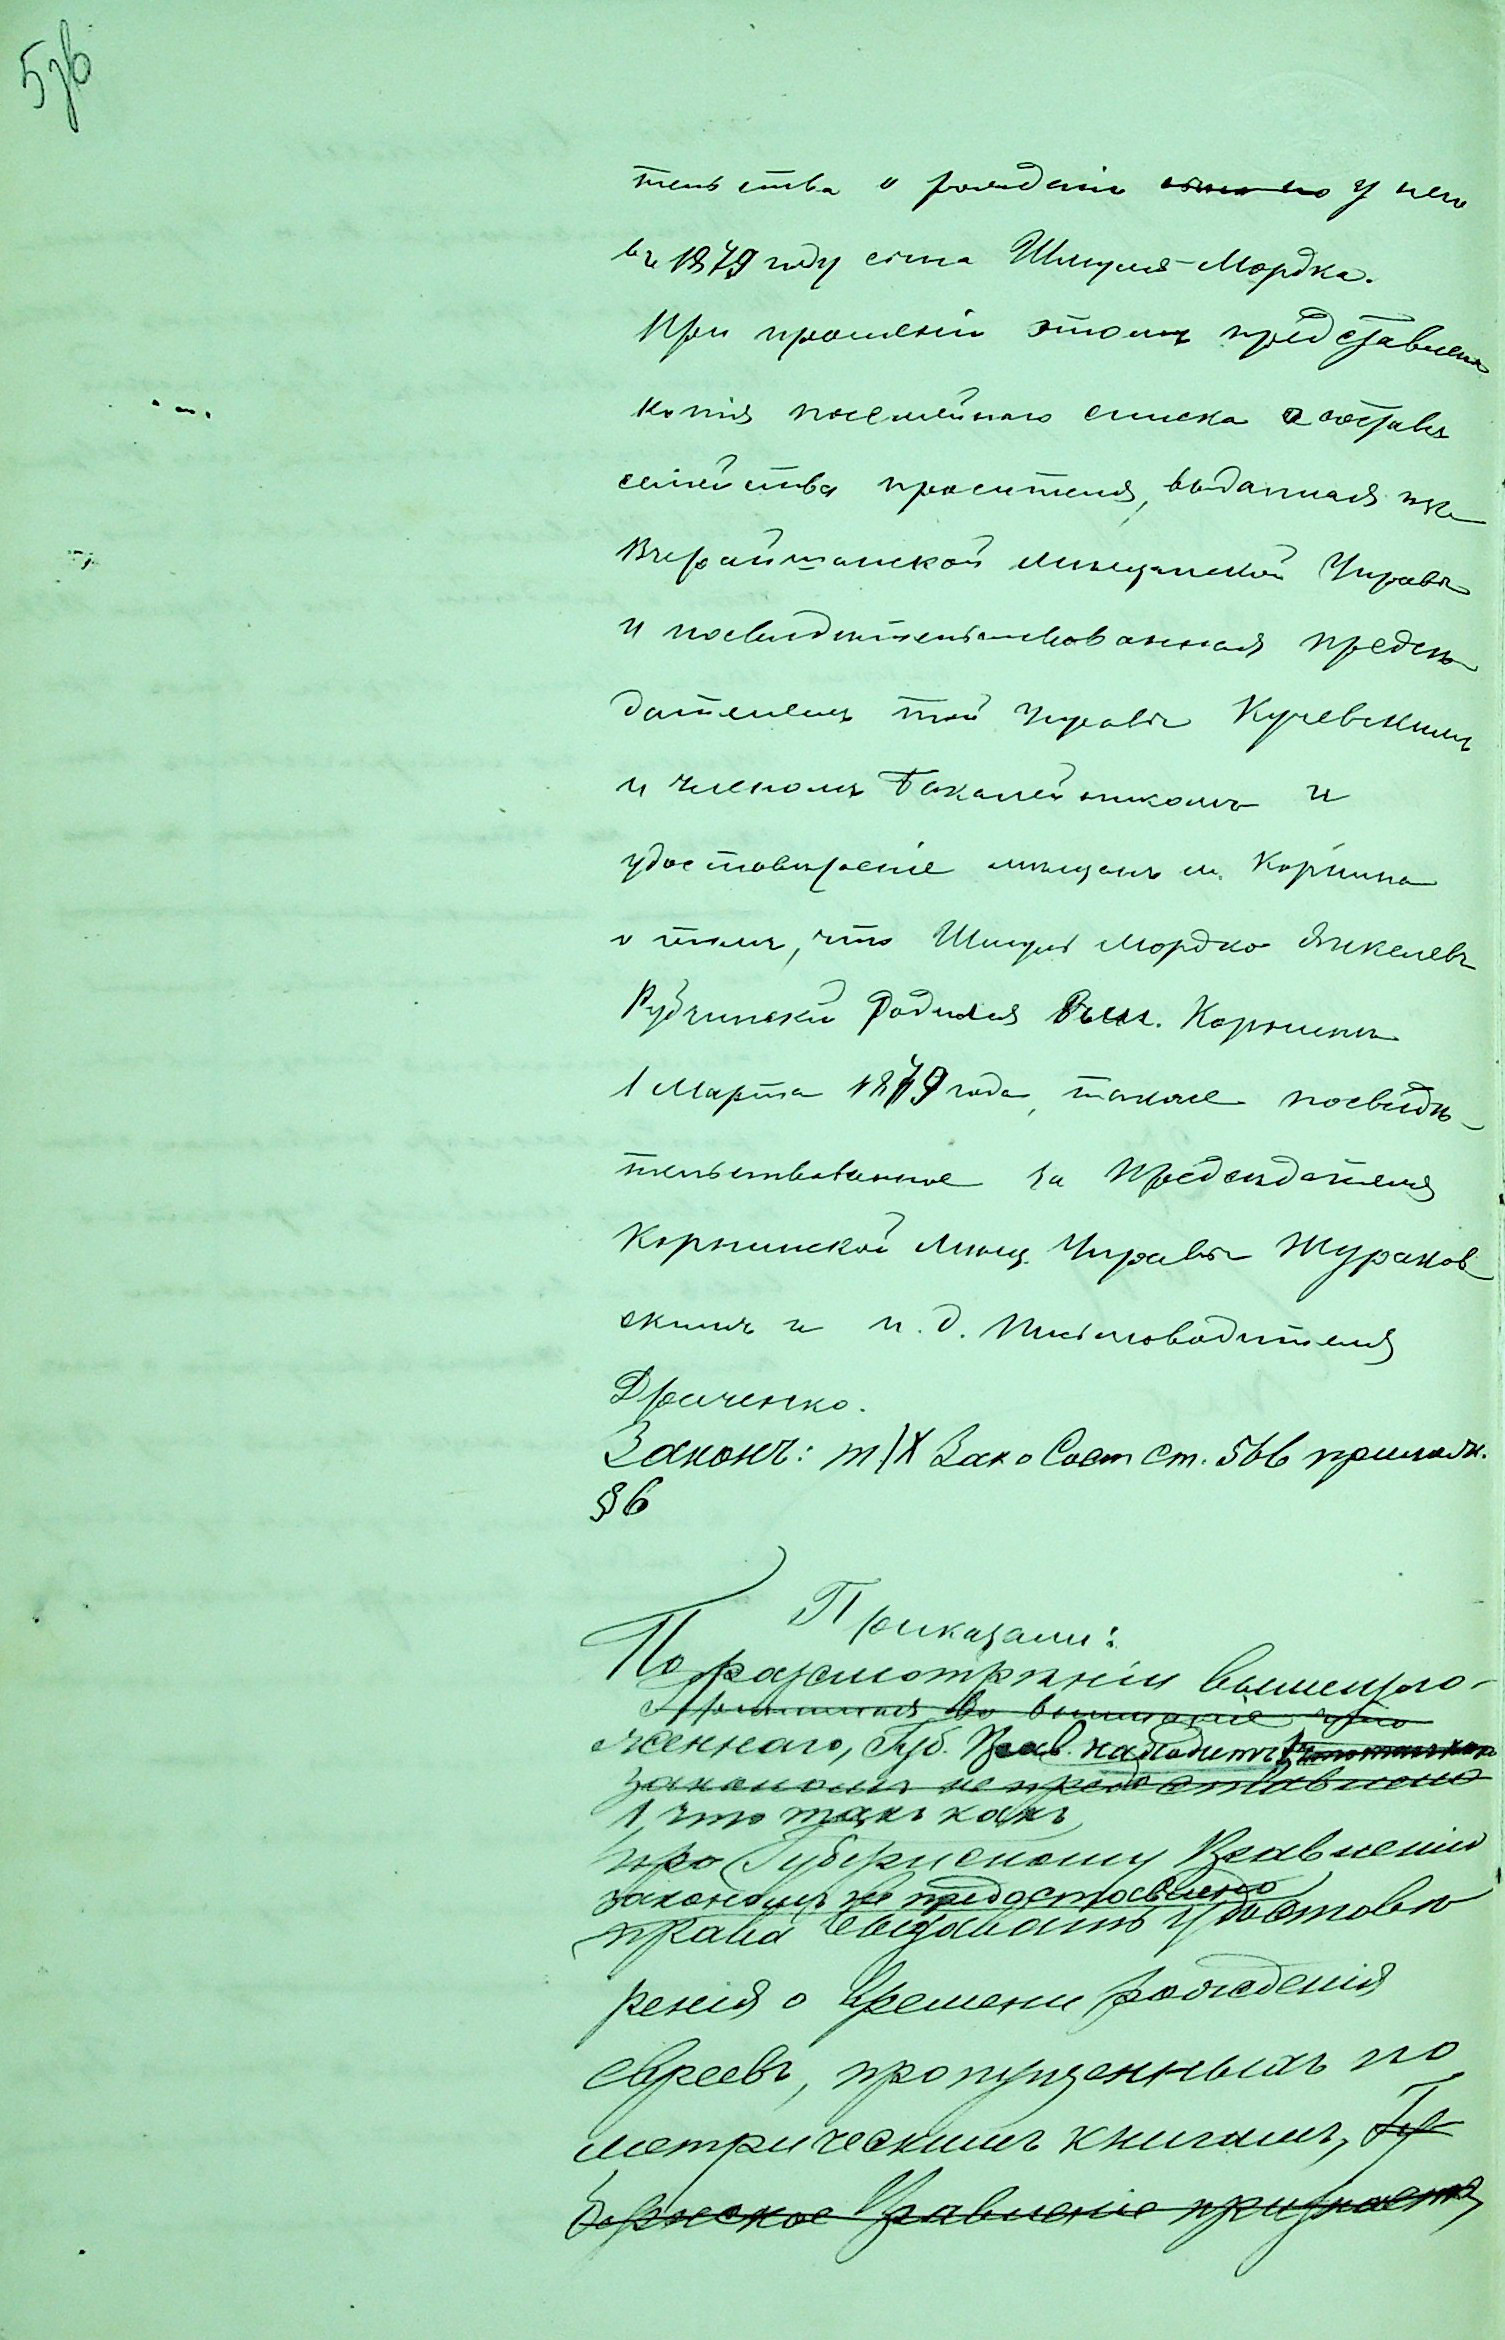 5зв
тельства о рожденіи ~~сына его~~ у него
въ 1879 году сына Шмуля-Мордка.
При прошеніи этомъ представлена
копія посемейнаго списка о составѣ
семейства просителя, выданная изъ
Вчерайшанской мѣщанской Управы
и посвидѣтельствованная предсѣ-
дателемъ той Управы Кучевскимъ
и членомъ Бакалейникомъ и
удостовѣреніе мѣщанъ м. Корнина
о томъ, что Шмуль Мордко Янкелевъ
Рубчинскій родился въ м. Корнинѣ
1 Марта 1879 года, также посвидѣ-
тельствованное за Предсѣдателя
Корнинской Мѣщ. Управы Жураков
скимъ и и. д. письмоводителя
Дрыченко.
Законъ: т IX Зак о Сост ст. 566 приложѣ.
§ 6
Приказали:
По разсмотрѣніи вышеизло-
~~Принимая во вниманіе что~~
женнаго, Губ. Прав. находитъ, ~~что такъ какъ~~
~~закономъ не предоставлено~~
1, что такъ какъ
Губернскому Правленію
закономъ не предоставлено
права выдавать удостовѣ
ренія о времени рожденія
евреевъ, пропущенныхъ по
метрическимъ книгамъ, ~~Гу~~
~~бернское Правленіе признаетъ~~